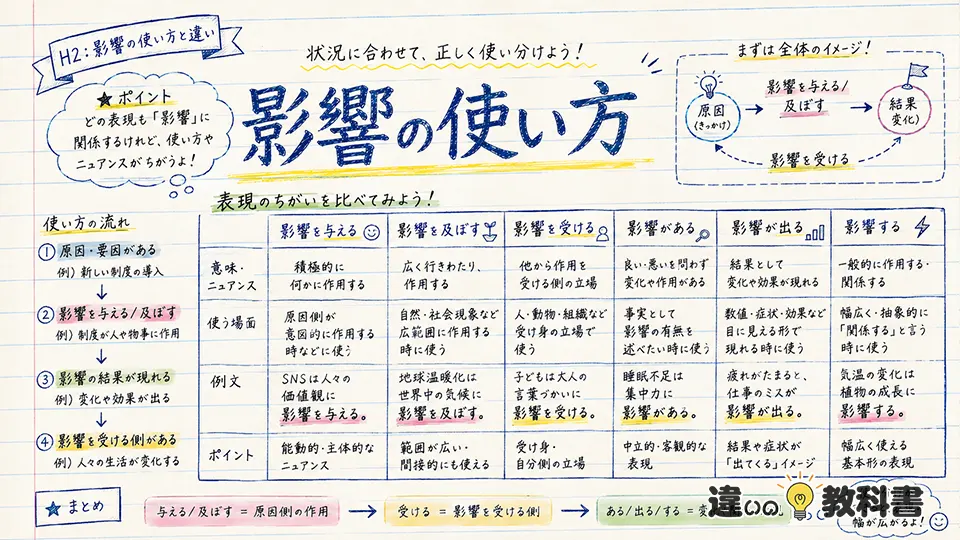 H2：影響の使い方と違い
状況に合わせて、正しく使い分けよう！
影響の使い方
★ポイント
どの表現も「影響」に
関係するけれど、使い方や
ニュアンスがちがうよ！
まずは全体のイメージ！
原因
(きっかけ)
影響を与える/
及ぼす
結果
変化)
影響を受ける
表現のちがいを比べてみよう！
使い方の流れ
① 原因・要因がある
例）新しい制度の導入
② 影響を与える/及ぼす
例）制度が人や物事に作用
③ 影響の結果が現れる
例）変化や効果が出る
④ 影響を受ける側がある
例）人々の生活が変化する
影響を与える 影響を及ぼす 影響を受ける 影響がある 影響が出る 影響する
意味・
ニュアンス
積極的に
何かに作用する
広く行きわたり、
作用する
他から作用を
受ける側の立場
良い・悪いを問わず
変化や作用がある
結果として
変化や効果が現れる
一般的に作用する・
関係する
使う場面
原因側が
意図的に作用する
時などに使う
自然・社会現象など
広範囲に作用する
時に使う
人・動物・組織など
受け身の立場で
使う
事実として
影響の有無を
述べたい時に使う
数値・症状・効果など
目に見える形で
現れる時に使う
幅広く・抽象的に
「関係する」と言う
時に使う
例文
SNSは人々の
価値観に
影響を与える。
地球温暖化は
世界中の気候に
影響を及ぼす。
子どもは大人の
言葉づかいに
影響を受ける。
睡眠不足は
集中力に
影響がある。
疲れがたまると、
仕事のミスが
影響が出る。
気温の変化は
植物の成長に
影響する。
ポイント
能動的・主体的な
ニュアンス
範囲が広い・
間接的にも使える
受け身・
自分側の立場
中立的・客観的な
表現
結果や症状が
「出てくる」イメージ
幅広く使える
基本形の表現
★まとめ
与える/及ぼす＝原因側の作用
受ける＝影響を受ける側
ある/出る/する＝変
幅が広がるよ！
違いの教科書